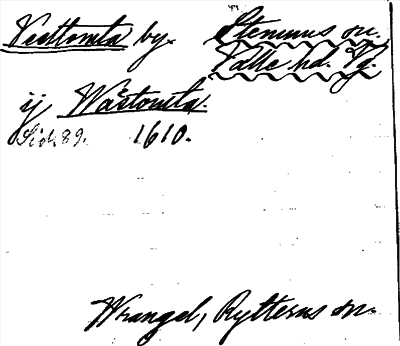 Vesttomta by. Stenums sn.
Valle hd. Vg.
ij Wästomta.
Sid. 89. 1610.
Wrangel, Rytterns sn.